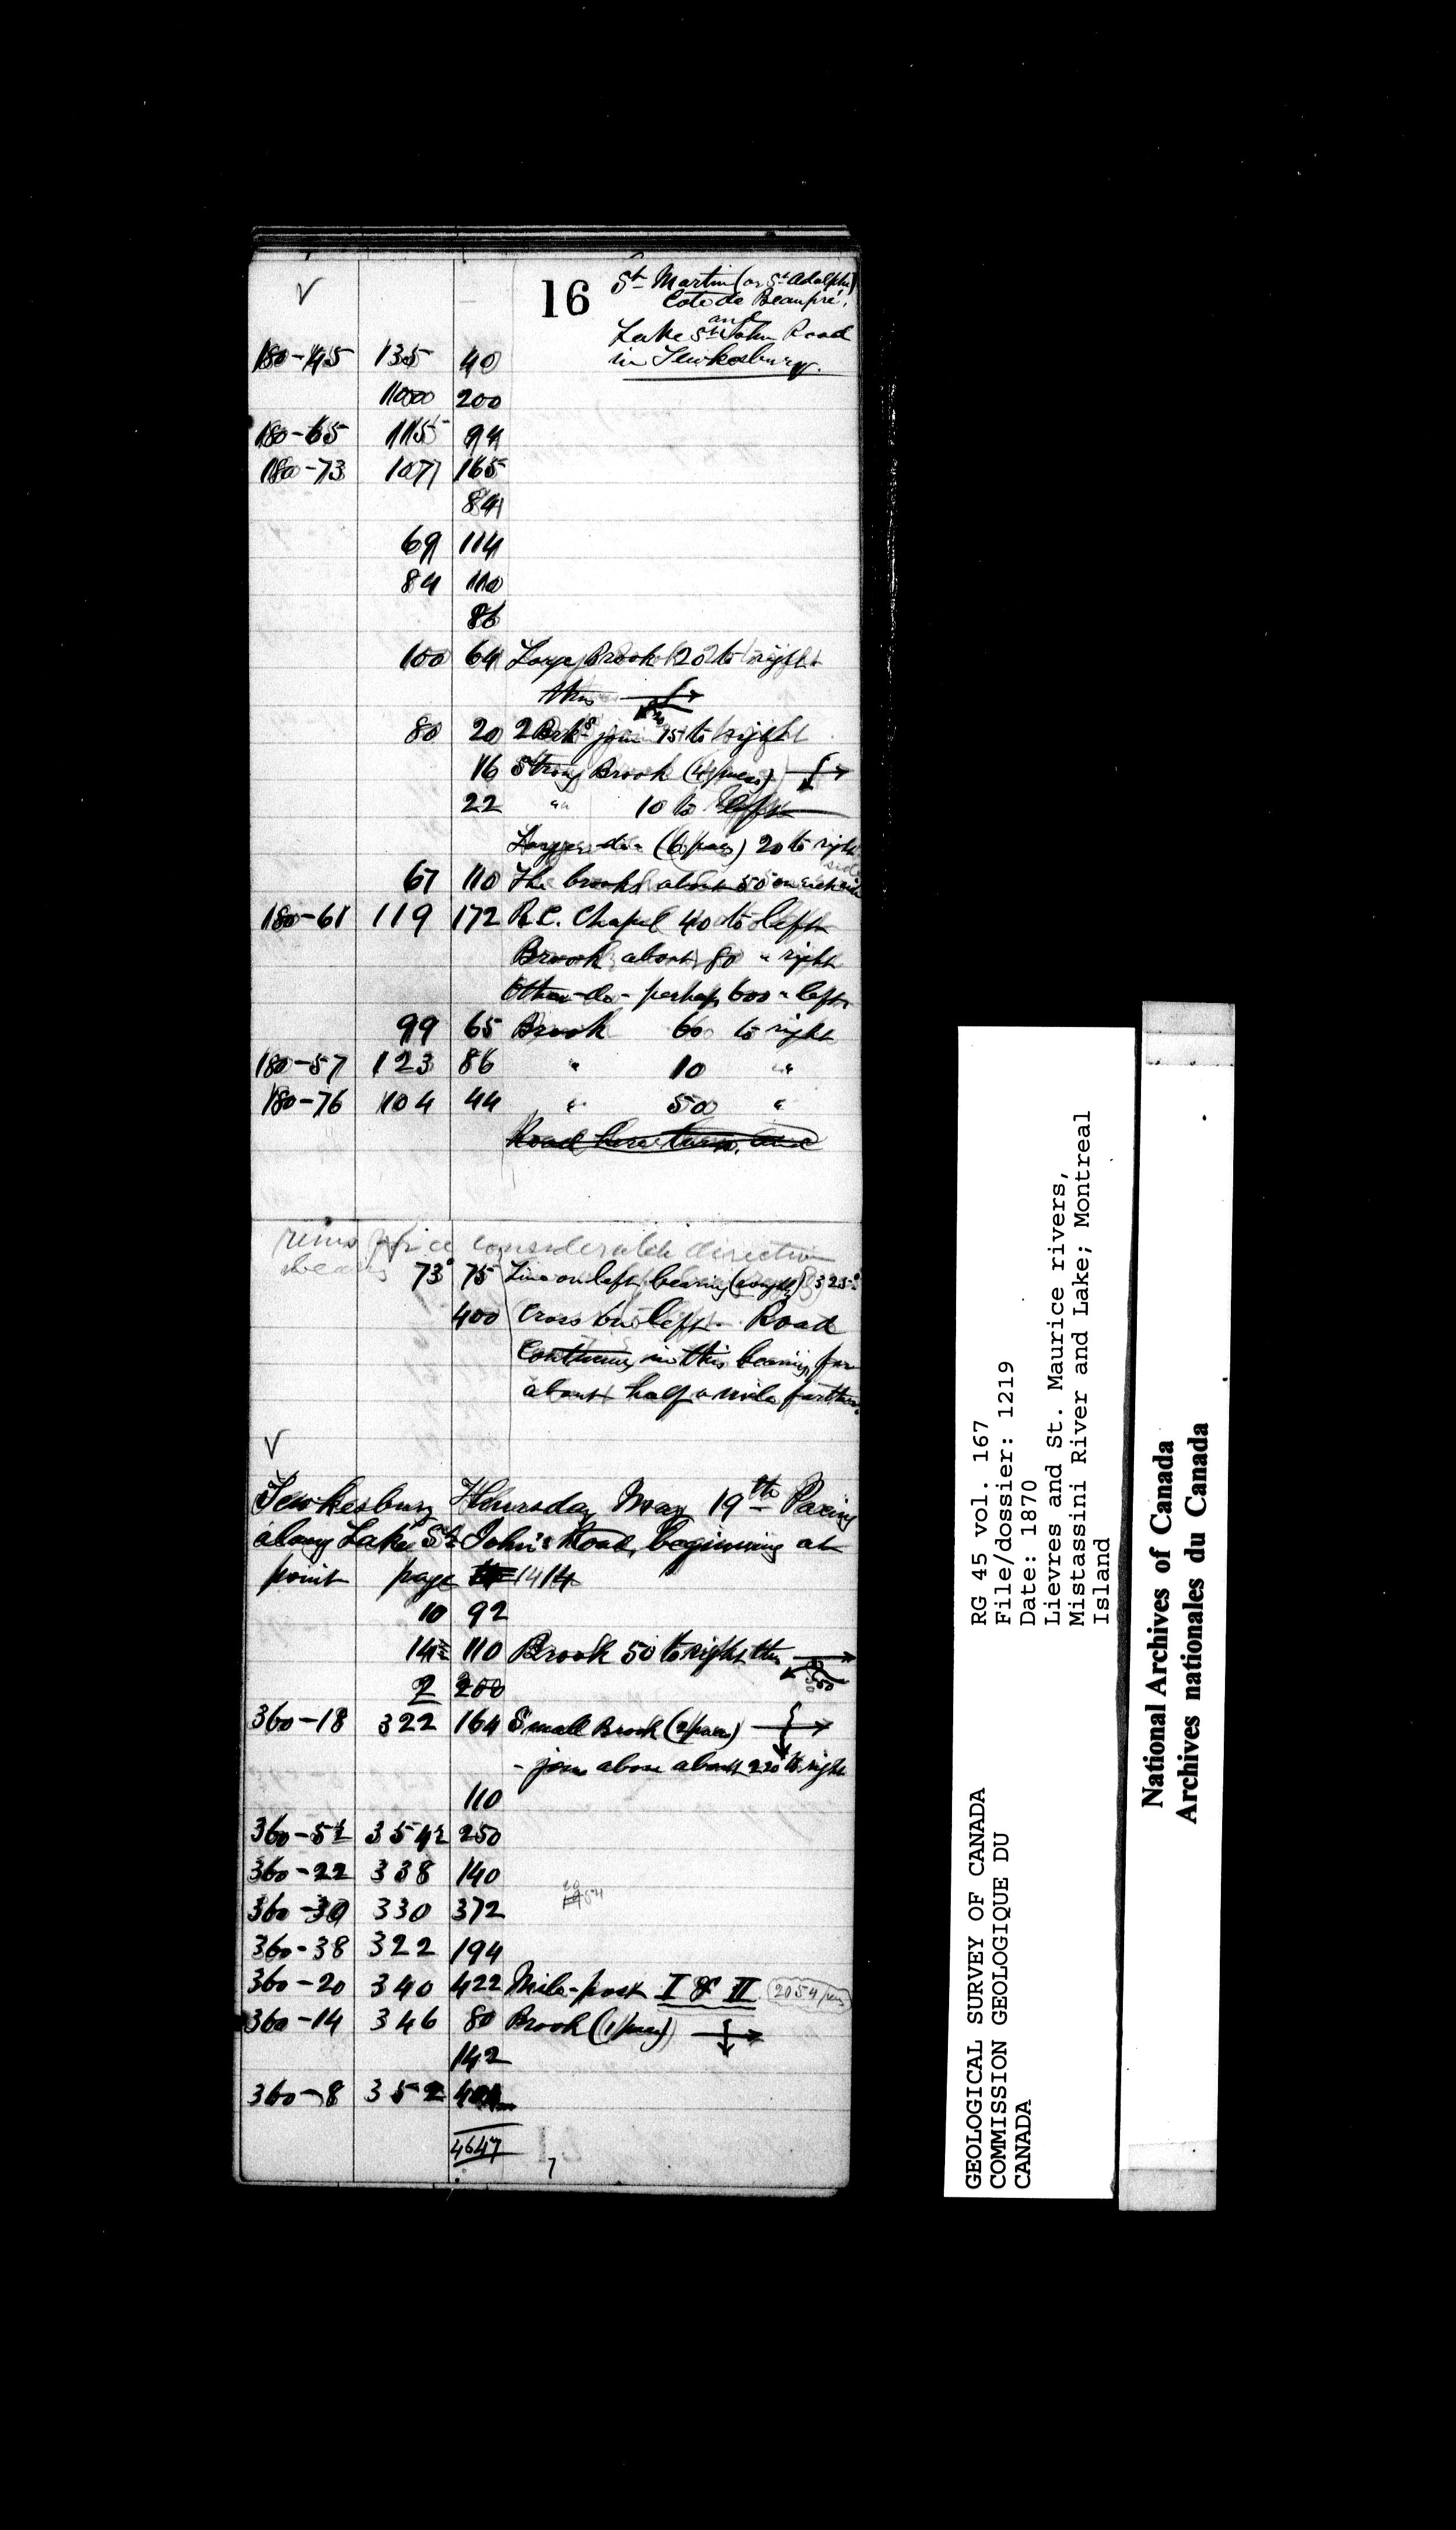 16
St Martin (or St Adolphe)
Cote de Beaupré,
and
Lake St John Road
in Tewkesbury.
180-45 135 40
1000 200
180-65 115 94
180-73 107 165
84
69 114
84 110
86
100 64 Large Brook 20 to right
thus
80 20 2 Brks join 15 to right
16 Strong Brook (4 paces)
22 " 10 to left
Larger do (6 paces) 20 to right
67 110 The brooks about 50 on each side
180-61 119 172 R.C. Chapel 40 to left
Brook about 80 " right
Other do - perhaps 600 " left
99 65 Brook 60 to right
180-57 123 86 " 10 "
180-76 104 44 " 50 "
Road here turns, and
considerable direction
73° 75 Line on left, bearing 325°
400 Cross on left. Road
continues in this bearing for
about half a mile further.
Tewkesbury Thursday May 19th Pacing
along Lake St John's Road, beginning at
point page 14
10 92
14½ 110 Brook 50 to right thus
50
2 200
360-18 322 164 Small Brook (2 paces)
- join above about 220 to right
110
360-5½ 354½ 250
360-22 338 140
360-30 330 372
360-38 322 194
360-20 340 422 Mile-post I & II 2054
360-14 346 80 Brook (1 pace)
142
360-8 352
4647
GEOLOGICAL SURVEY OF CANADA
COMMISSION GEOLOGIQUE DU
CANADA
RG 45 vol. 167
File/dossier: 1219
Date: 1870
Lievres and St. Maurice rivers,
Mistassini River and Lake; Montreal
Island
National Archives of Canada
Archives nationales du Canada